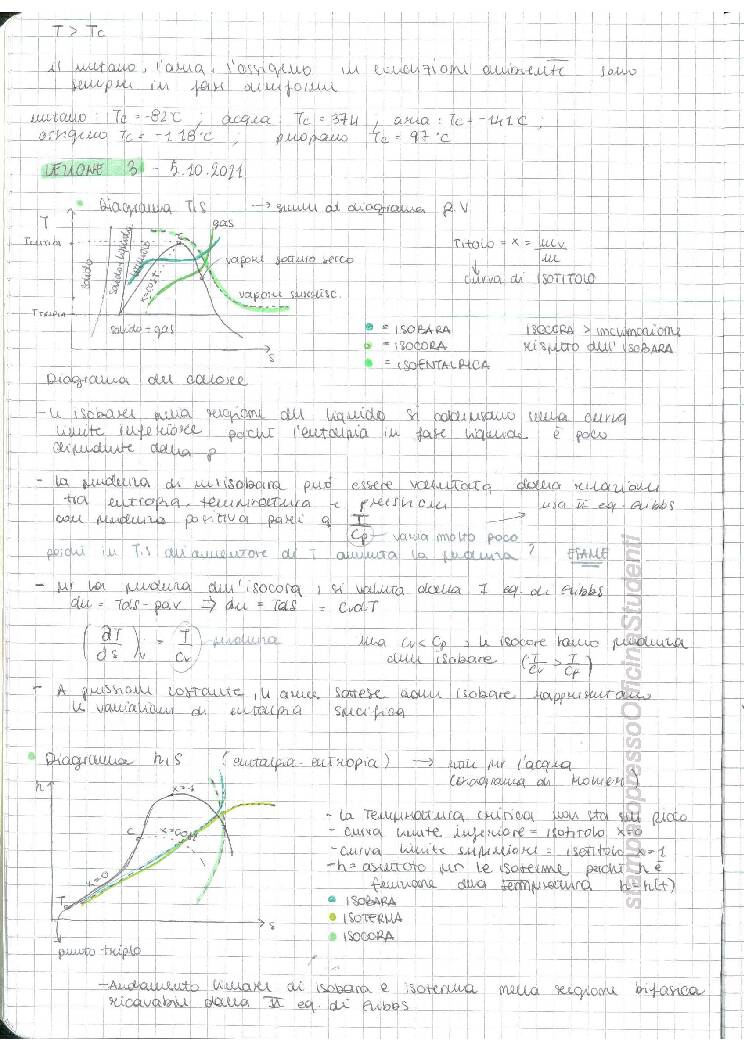 T > Tc
il metano, l'aria, l'ossigeno in condizioni ambiente sono
sempre in fase aeriforme
metano: Tc = -82°C ; acqua Tc = 374 , aria: Tc = -141°C ;
ossigeno Tc = -118°C , propano Tc = 97°C
LEZIONE 3 - 5.10.2021
Diagramma T,S → simile al diagramma p.V
T
gas
Tcritica
solido
solido+liquido
liquido
x=cost.
C
vapore saturo secco
vapore surrisc.
Ttripla
solido-gas
s
Titolo = x = mv/m
curva di ISOTITOLO
= ISOBARA
= ISOCORA
= ISOENTALPICA
ISOCORA > inclinazione
rispetto dell'ISOBARA
Diagramma del calore
- le isobare nella regione del liquido si addensano sulla curva
limite inferiore poiché l'entalpia in fase liquida è poco
dipendente dalla p
- la pendenza di un'isobara può essere valutata dalla relazione
tra entropia, temperatura e pressione
usa II eq. Gibbs
con pendenza positiva pari a T/Cp → varia molto poco
perché in T,S all'aumentare di T aumenta la pendenza? ESAME
- per la pendenza dell'isocora, si valuta dalla I eq. di Gibbs
du = Tds - pdv ⇒ du = Tds = CvdT
(∂T/∂s)v = T/Cv pendenza
ma cv < Cp , le isocore hanno pendenza
delle isobare (T/Cv > T/Cp)
- A pressione costante, le aree sottese dalle isobare rappresentano
le variazioni di entalpia specifica
Diagramma h,S (entalpia-entropia) → utile per l'acqua
(diagramma di Mollier)
h
x=1
C
x=cost
x=0
T
s
punto triplo
- La Temperatura critica non sta sul picco
- curva limite inferiore = isotitolo x=0
- curva limite superiore = isotitolo x=1
- h = asintoto per le isoterme poiché h è
funzione della temperatura h=h(t)
ISOBARA
ISOTERMA
ISOCORA
- Andamento lineare di isobara e isoterma nella regione bifasica
ricavabile dalla II eq. di Gibbs
stampatopressoOfficineStudenti